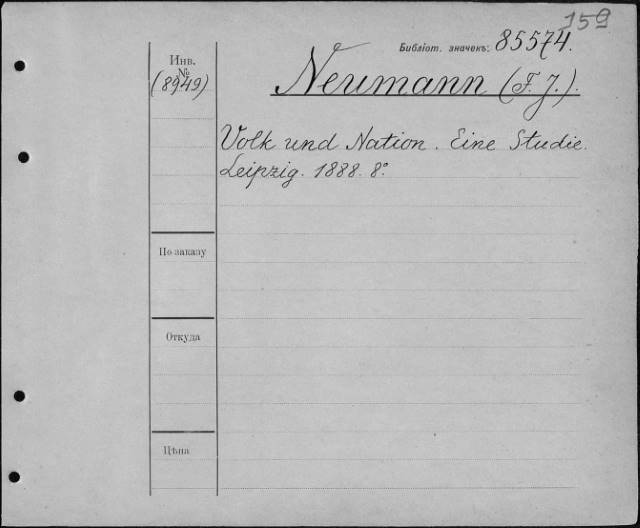 159
Библіот. значекъ: 85574.
Инв.
№
(8949)
Neumann (F. J.).
Volk und Nation. Eine Studie.
Leipzig. 1888. 8°.
По заказу
Откуда
Цѣна